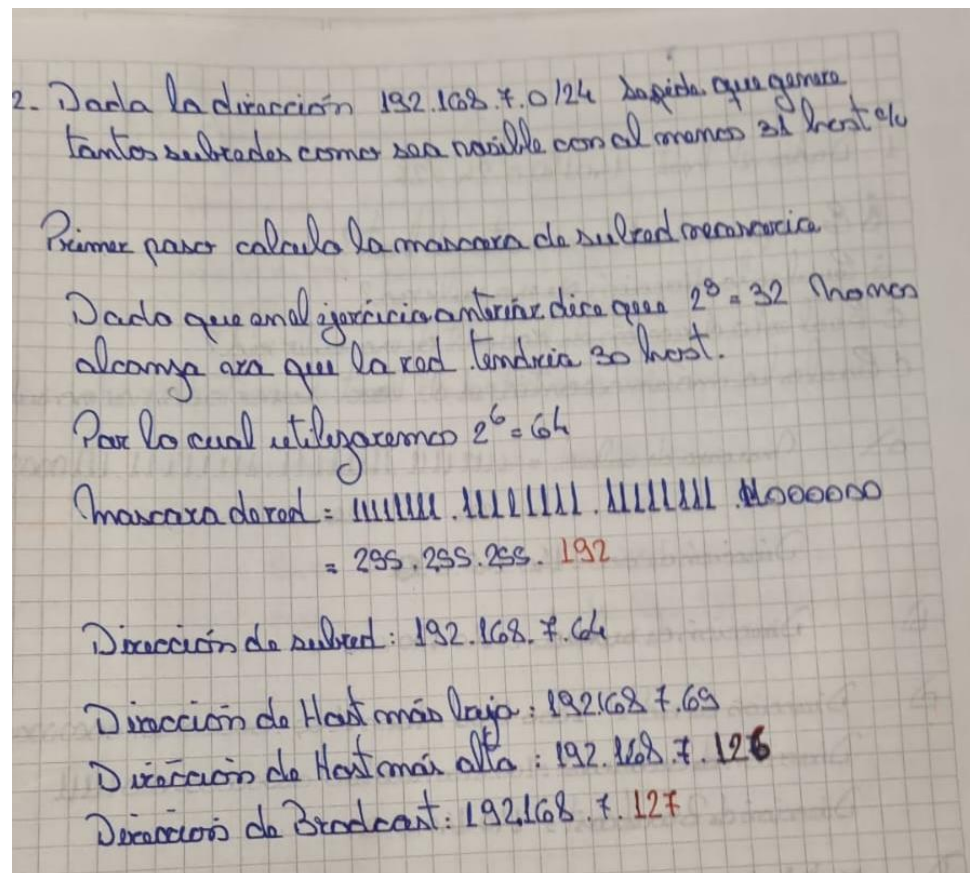 2. Dada la dirección 192.168.7.0/24 se pide que genere
tantos subredes como sea posible con al menos 31 host c/u
Primer paso calculo la mascara de subred necesaria
Dado que en el ejercicio anterior dice que 2⁵ = 32 no nos
alcanza ara que la red tendria 30 host.
Por lo cual utilizaremos 2⁶ = 64
mascara de red = 11111111.11111111.11111111.11000000
= 255.255.255.192
Dirección de subred: 192.168.7.64
Dirección de Host más baja: 192.168.7.65
Dirección de Host más alta: 192.168.7.126
Dirección de Brodcast: 192.168.7.127